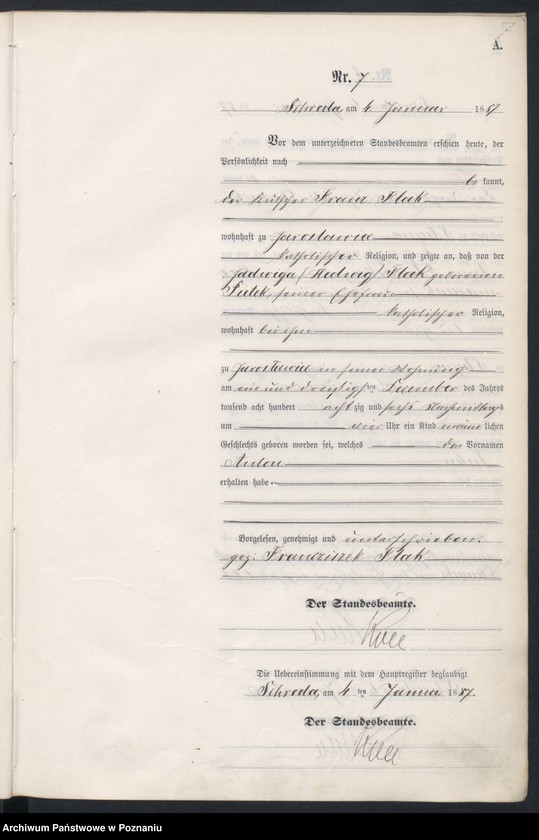 7
A.
Nr. 7
Schroda, am 4 Januar 1887
Vor dem unterzeichneten Standesbeamten erschien heute, der
Persönlichkeit nach
be kannt,
der Kutscher Franz Ptak
wohnhaft zu Jaroslawiec
katholischer Religion, und zeigte an, daß von der
Jadwiga /Hedwig/ Ptak geborenen
seiner Ehefrau
katholischer Religion,
wohnhaft bei ihm
zu Jaroslawiec in seiner Wohnung
am ein und dreißigsten Dezember des Jahres
tausend acht hundert achtzig und sechs Nachmittags
um vier Uhr ein Kind männlichen
Geschlechts geboren worden sei, welches den Vornamen
Anton
erhalten habe
Vorgelesen, genehmigt und unterschrieben.
gez: Franciszek Ptak
Der Standesbeamte.
Die Uebereinstimmung mit dem Hauptregister beglaubigt
Schroda, am 4 ten Januar 1887.
Der Standesbeamte.
Archiwum Państwowe w Poznaniu